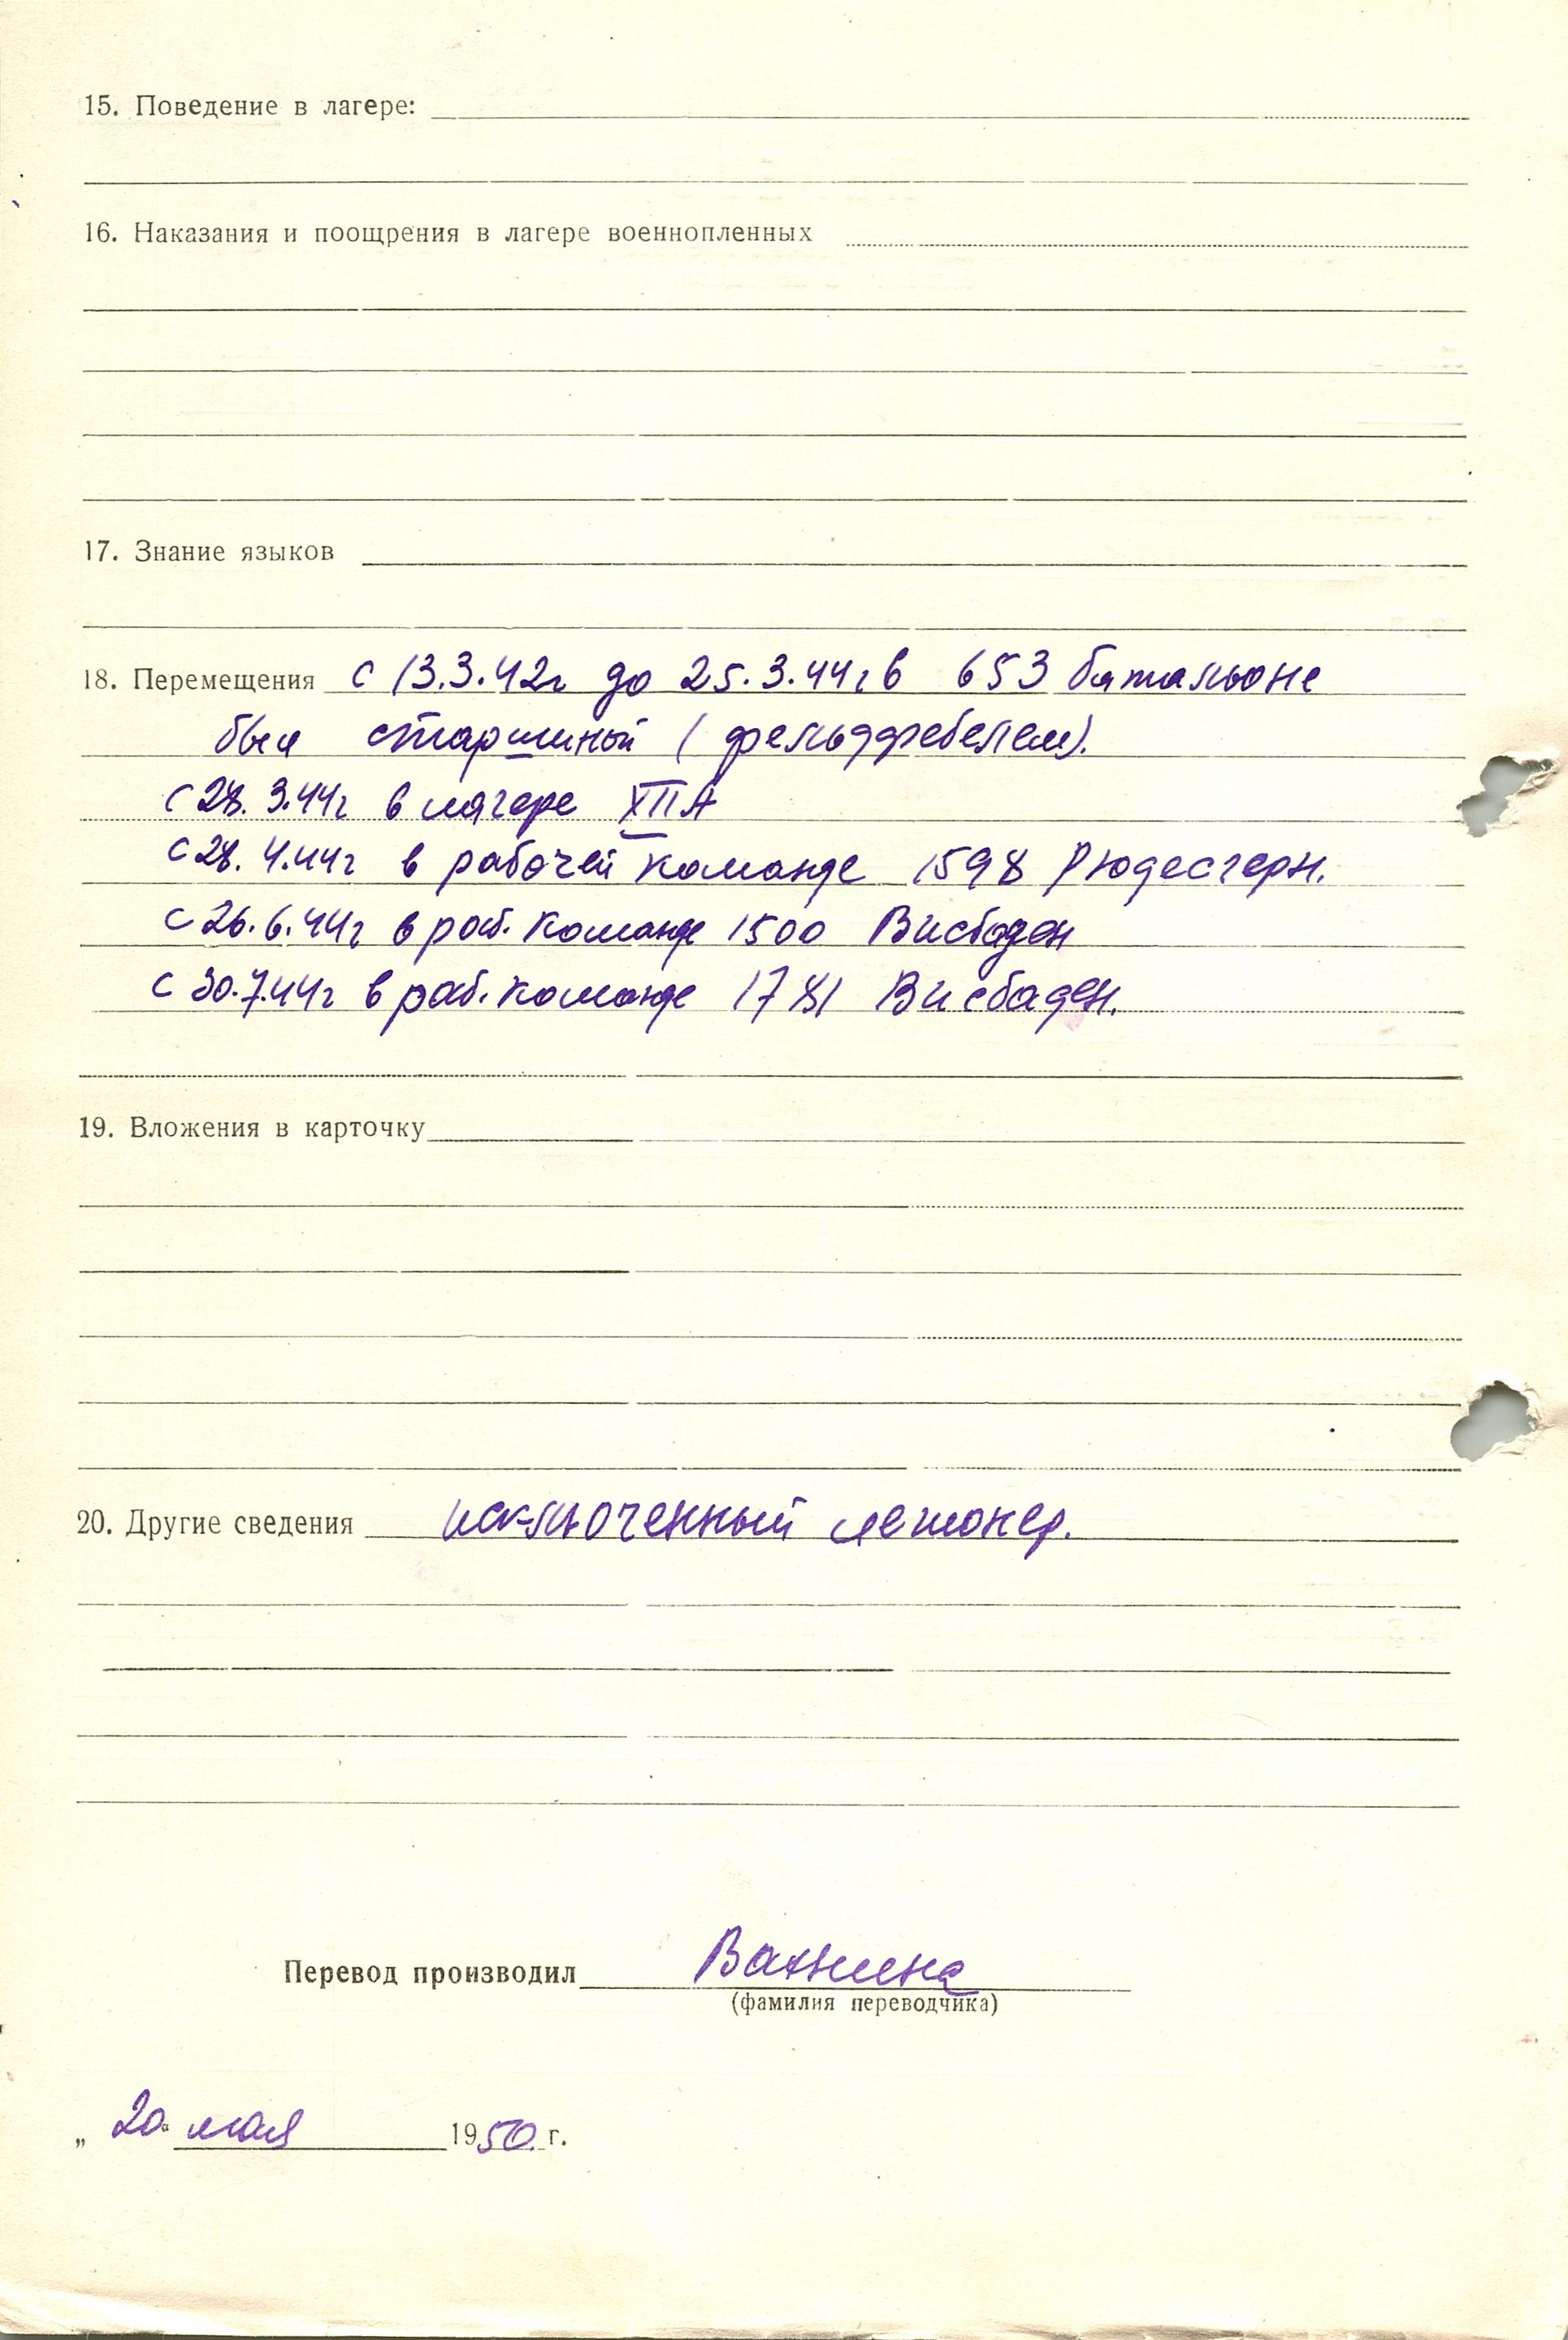 15. Поведение в лагере:
16. Наказания и поощрения в лагере военнопленных
17. Знание языков
18. Перемещения с 13.3.42г до 25.3.44г в 653 батальоне
был старшиной (фельдфебелем).
с 28.3.44г в лагере XIIA
с 28.4.44г в рабочей команде 1598 Рюдесгерн.
с 26.6.44г в раб. команде 1500 Висбаден
с 30.7.44г в раб. команде 1781 Висбаден.
19. Вложения в карточку
20. Другие сведения исключенный легионер.
Перевод производил
(фамилия переводчика)
„ 20 “ мая 1950 г.